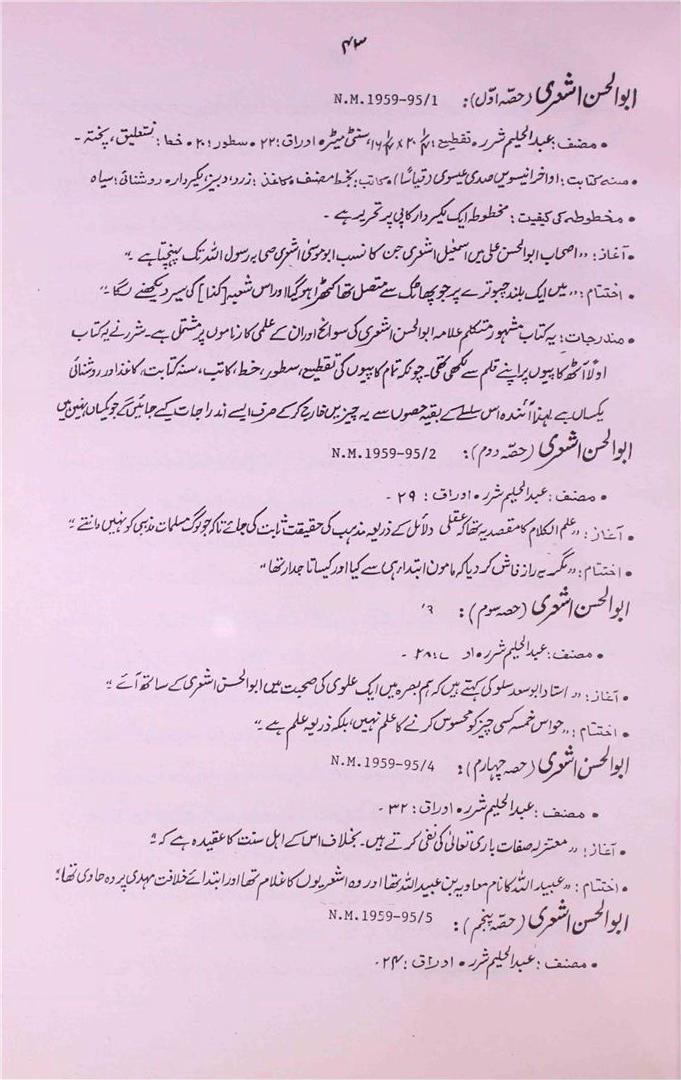 ۴۳
ابوالحسن اشعری (حصّہ اوّل): N.M.1959-95/1
• مصنف: عبدالحلیم شرر • تقطیع: ۲۰ × ۱۶ سنٹی میٹر • اوراق: ۲۲ • سطور: ۲۰ • خط: نستعلیق، پختہ -
• سنہ کتابت: اواخر انیسویں صدی عیسوی (قیاساً) • کاتب: بخط مصنف • کاغذ: زرد، دبیز، لکیردار • روشنائی: سیاہ
• مخطوطہ کی کیفیت: مخطوطہ ایک لکیردار کاپی پر تحریر ہے -
• آغاز: "اصحاب ابوالحسن علی میں اسمٰعیل اشعری جن کا نسب ابوموسیٰ اشعری صحابہ رسول اللہ تک پہنچتا ہے۔"
• اختتام: "میں ایک بلند چبوترے پر جو پھاٹک سے متصل تھا کھڑا ہو گیا اور اس شعبہ [کذا] کی سیر دیکھنے لگا۔"
• مندرجات: یہ کتاب مشہور متکلم علامہ ابوالحسن اشعری کی سوانح اور ان کے علمی کارناموں پر مشتمل ہے۔ شرر نے یہ کتاب
اولاً آٹھ کاپیوں پر اپنے قلم سے لکھی تھی۔ چونکہ تمام کاپیوں کی تقطیع، سطور، خط، کاتب، سنہ کتابت، کاغذ اور روشنائی
یکساں ہے لہٰذا آئندہ اس سلسلے کے بقیہ حصوں سے یہ چیزیں خارج کر کے صرف ایسے اندراجات کیے جائیں گے جو یکساں نہیں ہیں
ابوالحسن اشعری (حصّہ دوم): N.M.1959-95/2
• مصنف: عبدالحلیم شرر • اوراق: ۲۹ -
• آغاز: "علم الکلام کا مقصد یہ تھا کہ عقلی دلائل کے ذریعہ مذہب کی حقیقت ثابت کی جائے تاکہ جو لوگ مسلمات مذہبی کو نہیں مانتے۔"
• اختتام: "مگر یہ راز فاش کر دیا کہ مامون ابتدا ہی سے کیا اور کیسا تاجدار تھا"
ابوالحسن اشعری (حصہ سوم):
• مصنف: عبدالحلیم شرر • او ۲۸ -
• آغاز: "استاد ابوسعد سلوکی کہتے ہیں کہ ہم بصرہ میں ایک علوی کی صحبت میں ابوالحسن اشعری کے ساتھ آئے۔"
• اختتام: "حواس خمسہ کسی چیز کو محسوس کرنے کا علم نہیں، بلکہ ذریعہ علم ہے۔"
ابوالحسن اشعری (حصہ چہارم): N.M.1959-95/4
• مصنف: عبدالحلیم شرر • اوراق: ۳۲ -
• آغاز: "معتزلہ صفات باری تعالیٰ کی نفی کرتے ہیں۔ بخلاف اس کے اہل سنت کا عقیدہ ہے کہ۔"
• اختتام: "عبیداللہ کا نام معاویہ بن عبیداللہ تھا اور وہ اشعریوں کا غلام تھا اور ابتدائے خلافت مہدی پر وہ حاوی تھا۔"
ابوالحسن اشعری (حصّہ پنجم): N.M.1959-95/5
• مصنف: عبدالحلیم شرر • اوراق: ۲۴ -